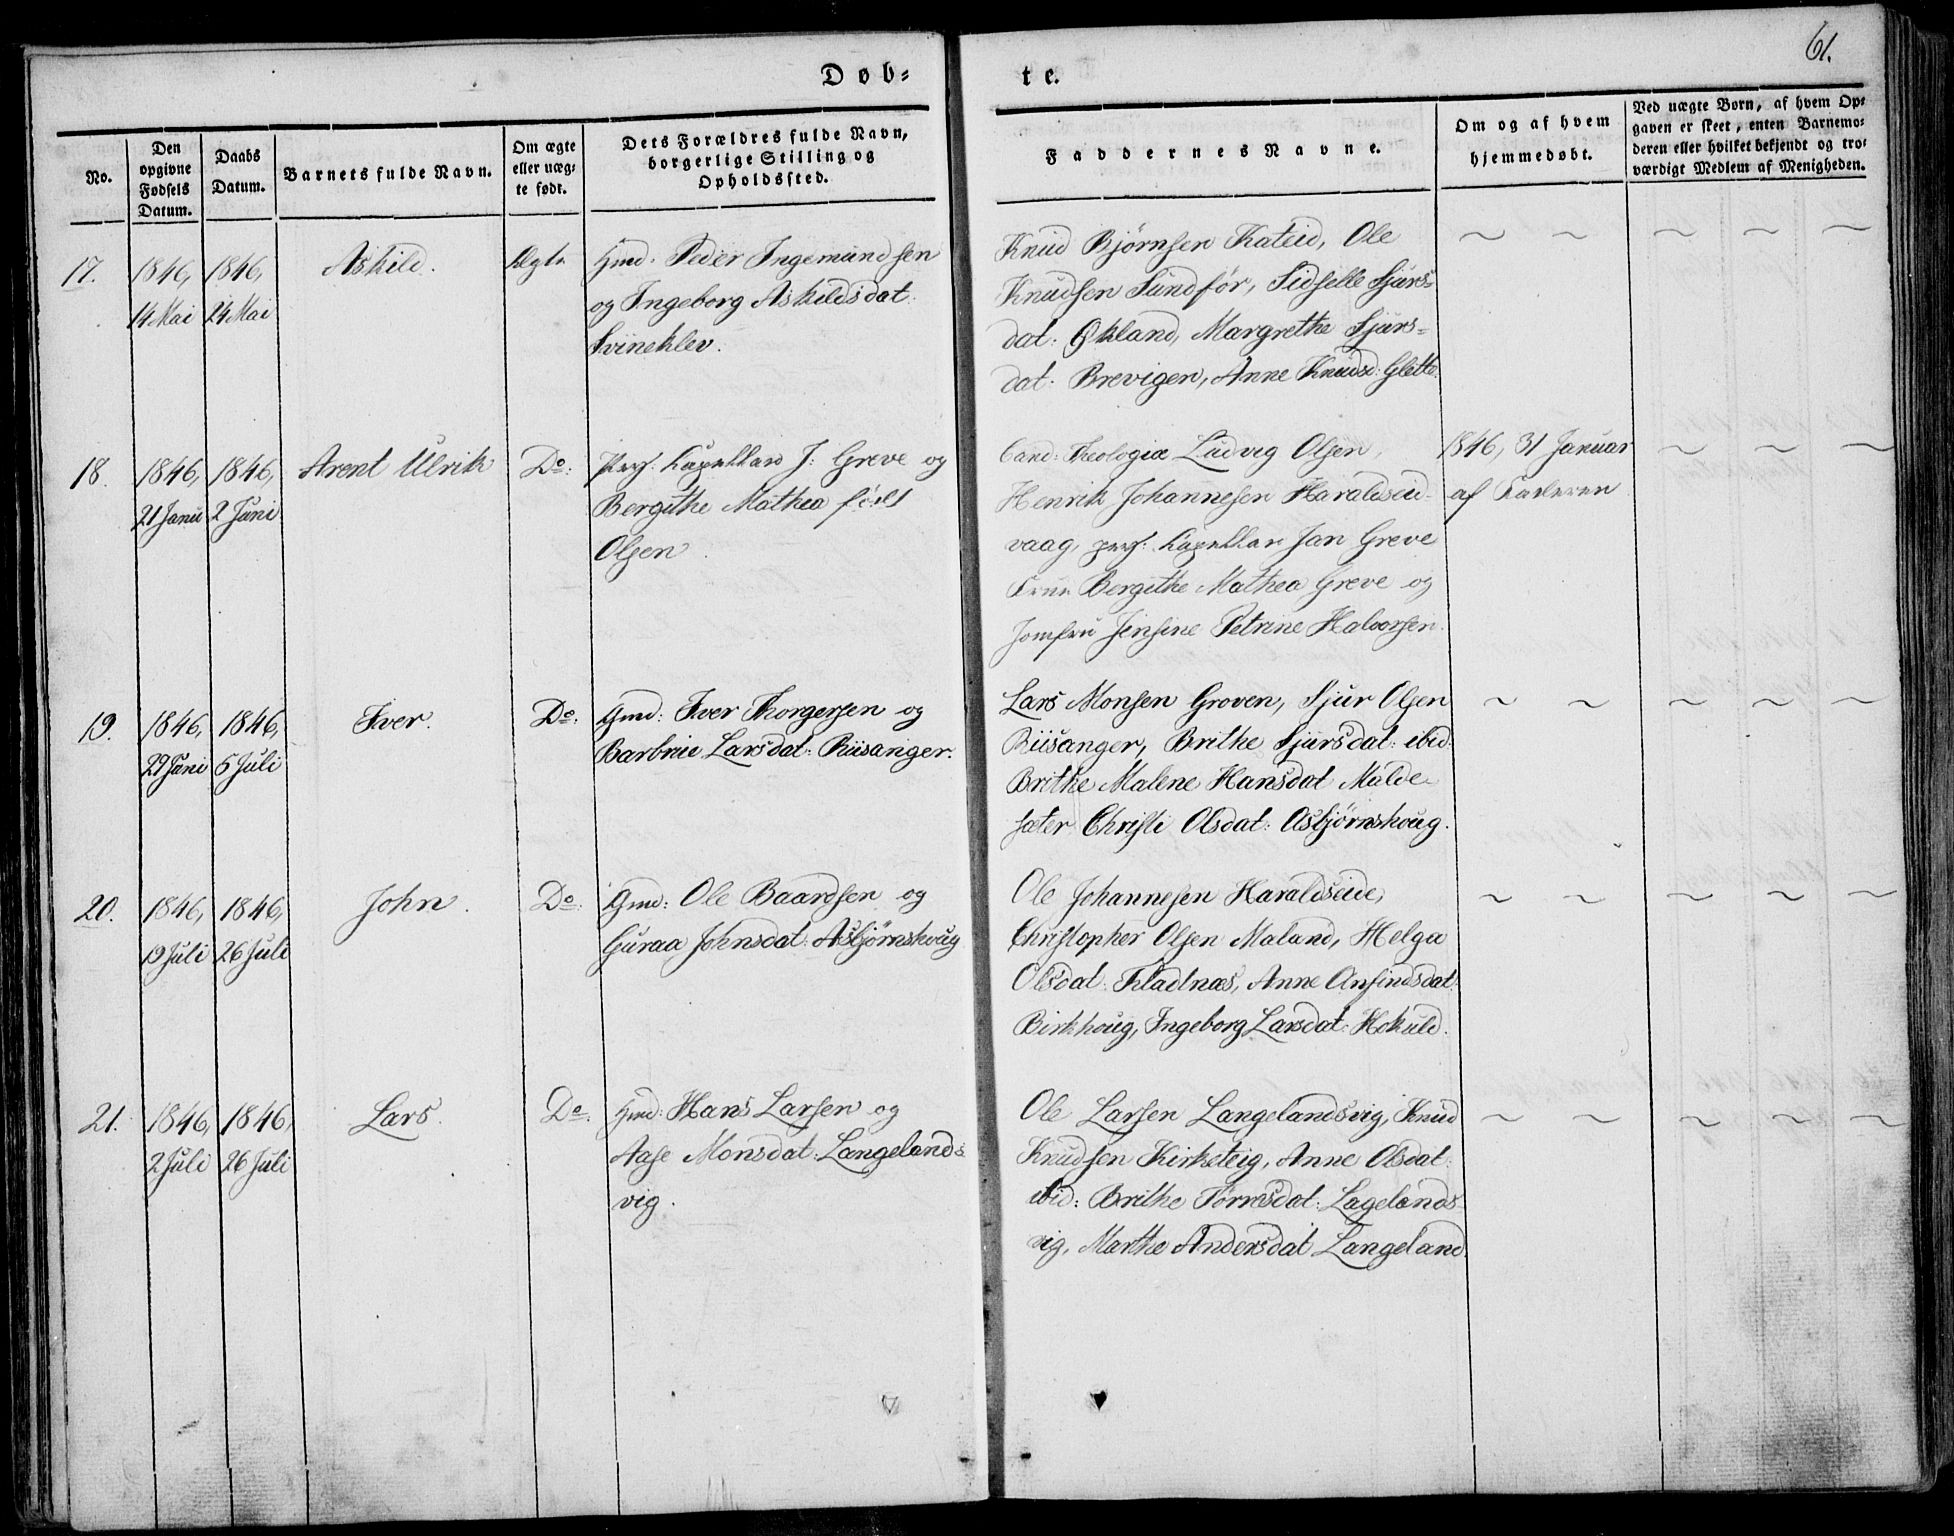 61.
Døb=
te.
No.
Den opgivne Fødsels Datum.
Daabs Datum.
Barnets fulde Navn.
Om ægte eller uæg= te født.
Dets Forældres fulde Navn, borgerlige Stilling og Opholdssted.
Faddernes Navne.
Om og af hvem hjemmedøbt.
Ved uægte Børn, af hvem Op= gaven er skeet, enten Barnemo= deren eller hvilket bekjendt og tro= værdigt Medlem af Menigheden.
17.
1846, 14 Mai
1846, 24 Mai
Askild.
Ægte
Gmd. Peder Ingemundsen
og Ingeborg Askildsdat:
Svineklev.
Knud Bjørnsen Kateid, Ole
Knudsen Sundfør, Sidselle Sjurs=
dat: Økland, Margrethe Sjurs=
dat: Brevigen, Anne Knudsd: Glette.
18.
1846, 21 Janu
1846, 2 Juni
Arent Ulrik
Do:
pers: Kapellan J: Greve og
Bergithe Mathea født
Olsen.
Cand: Theologiæ Ludvig Olsen,
Henrik Johannesen Haraldseid=
vaag, pers: Kapellan Jan Greve
Frue Bergithe Mathea Greve og
Jomfru Jensine Petrine Halvorsen.
1846, 31 Januar
af Faderen
19.
1846, 29 Juni
1846, 5 Juli
Iver.
Do:
Gmd: Iver Thorgersen og
Barbrue Larsdat: Riisanger.
Lars Monsen Groven, Sjur Olsen
Riisanger, Brithe Sjursdat: ibid:
Brithe Malene Hansdat Molde=
sæter Christi Olsdat: Asbjørnshoug.
20.
1846, 19 Juli
1846, 26 Juli
John.
Do:
Gmd: Ole Baardsen og
Guraa Johnsdat: Asbjørnshoug
Ole Johannesen Haraldseide,
Christopher Olsen Maland, Helga
Olsdat: Fladtnæs, Anne Anfindsdat:
Birkhoug, Ingeborg Larsdat: Hokuld.
21.
1846, 2 Juli
1846, 26 Juli
Lars.
Do:
Hmd: Hans Larsen og
Aase Monsdat: Langelands=
vig.
Ole Larsen Langelandsvig, Knud
Knudsen Kirketeig, Anne Olsdat:
ibid: Brithe Tørresdat: Lagelands=
vig, Marthe Andersdat Langeland.